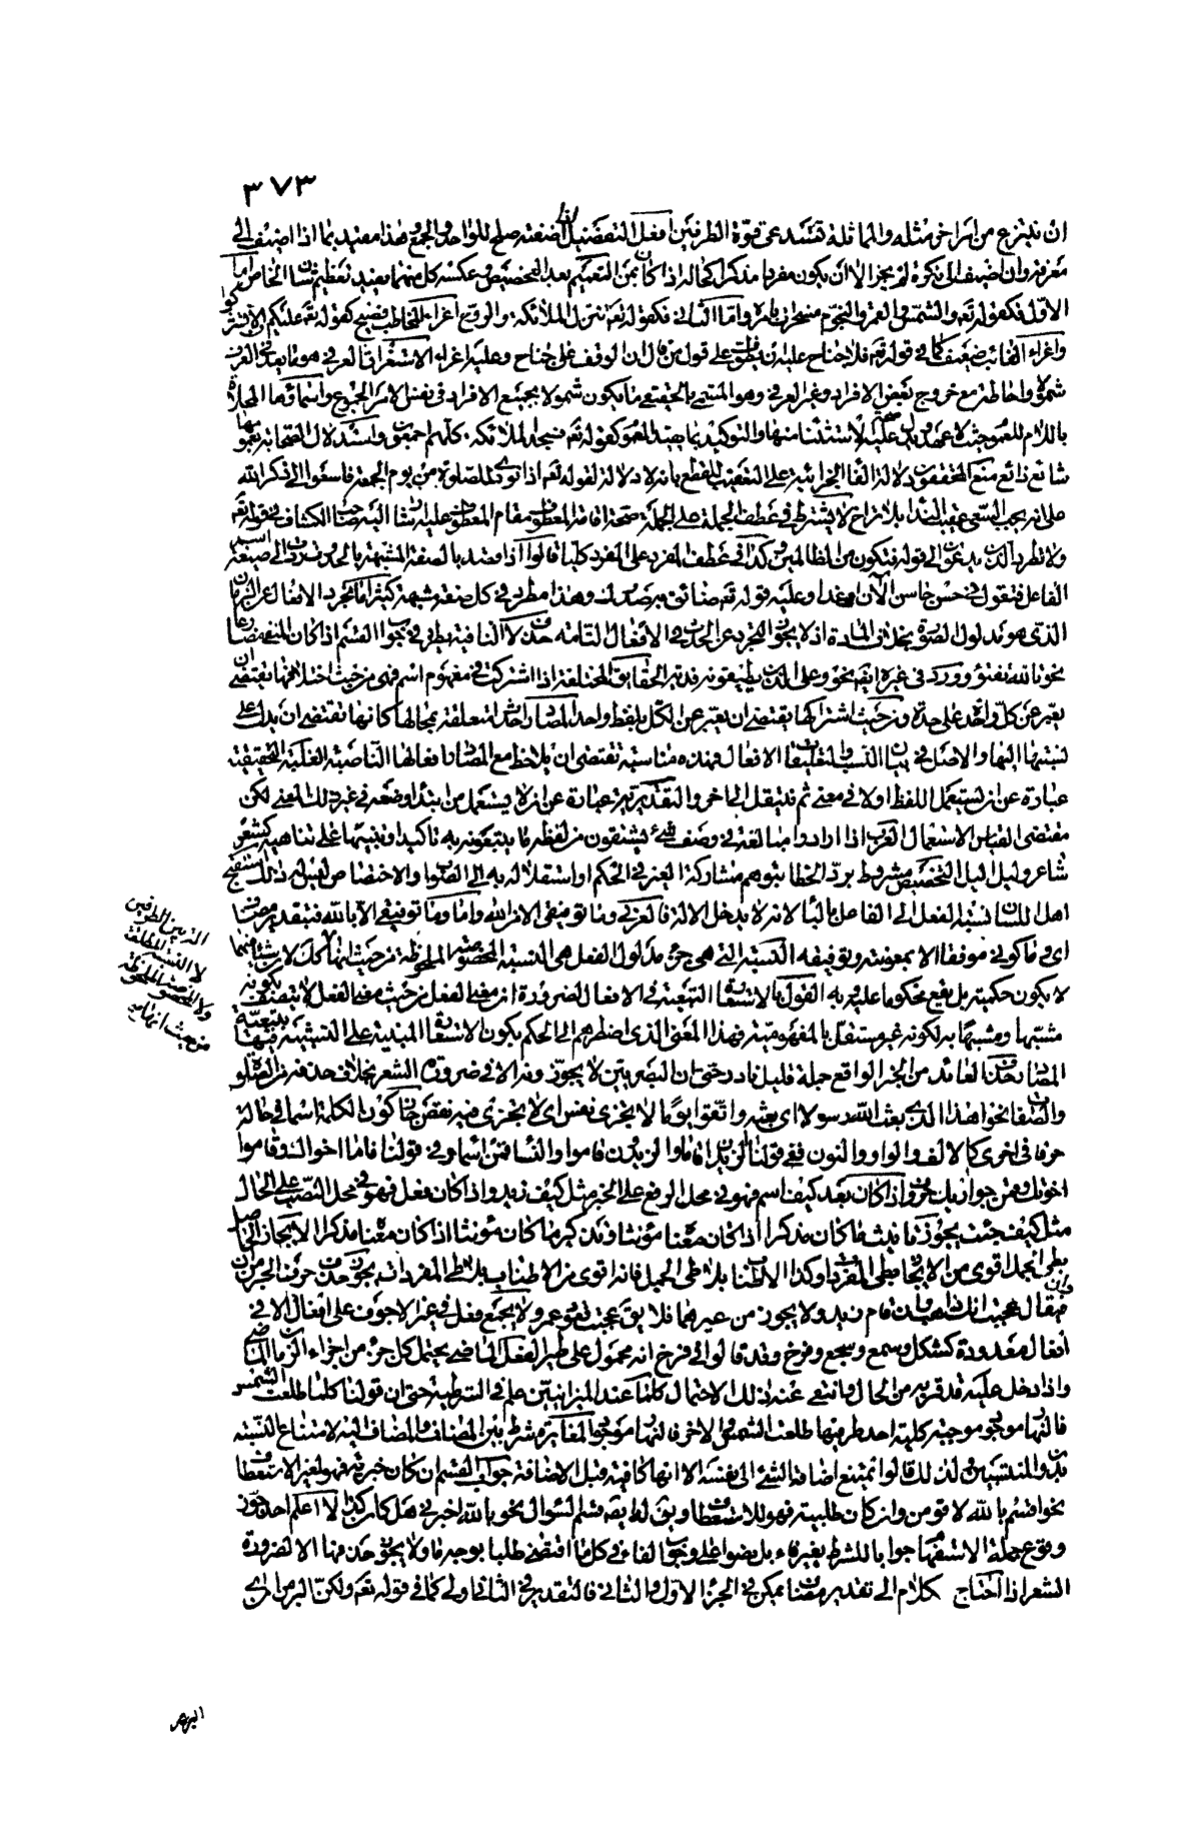 ٣٧٣
ان ينتزع من امر اخر مثله والمماثلة تستدعي قوة الطرفين افعل التفضيل اذا صفته صلح للواحد والجمع هذا مقيد بما اذا اضيف الى
معرفة وان اضيف الى نكرة لم يجز الا ان يكون مفردا مذكرا كحاله اذا كان بمن التعميم بعد التخصيص وعكسه كل منهما يفيد تعظيم شان الخاص اما
الاول فكقوله تعه والشمس والقمر والنجوم مسخرات بامره واما الثاني فكقوله تعه تنزل الملائكة والروح اغراء المخاطب فصيح كقوله تعه عليكم
واغراء الغائب ضعيف كما في قوله تعه فلا جناح عليه ان يطوف على قول من قال ان الوقف على جناح وعليه اغراء الاستغراق العرفي هو ما يعد في العرف
شمولا واحاطة مع خروج بعض الافراد وغير العرفي وهو المسمى بالحقيقي ما يكون شمولا لجميع الافراد في نفس الامر الجموع واسماؤها المحلاة
باللام للعموم حيث لا عهد ويدل عليه الاستثناء منها والتوكيد بما يفيد العموم كقوله تعه فسجد الملائكة كلهم اجمعون واستدلال الصحابة بعمومها
شائع ذائع منع المحققون دلالة الفاء الجزائية على التعقيب للقطع بانه لا دلالة لقوله تعه اذا نودي للصلوة من يوم الجمعة فاسعوا الى ذكر الله
على انه يجب السعي عقيب النداء بلا تراخ لا يشترط في عطف الجملة على الجملة صحة اقامة المعطوف مقام المعطوف عليه اشار اليه صاحب الكشاف في قوله تعه
ولا تطرد الذين يدعون الى قوله فتكون من الظالمين وكذا في عطف المفرد على المفرد كلما قالوا اذا قصد بالصفة المشبهة الحدوث ردت الى صيغة اسم
الفاعل فتقول في حسن حاسن الآن او غدا وعليه قوله تعه ضائق به صدرك وهذا مطرد في كل صفة مشبهة كثيرا ما تجرد الافعال عن الزمان
الذي هو مدلول الصورة بخلاف المادة اذ لا يجوز التجرد عن الحدث في الافعال التامة حذف لا النافية يطرد في جواب القسم اذا كان المنفي مضارعا
نحو تالله تفتؤ وورد في غيره ايضا نحو وعلى الذين يطيقونه فدية الحقائق المختلفة اذا اشتركت في مفهوم اسم فهي من حيث اختلافها تقتضي ان
يعبر عن كل واحد على حدة ومن حيث اشتراكها يقتضي ان يعبر عن الكل بلفظ واحد المصادر احداث متعلقة بمحالها كانها تقتضي ان يدل على
نسبتها اليها والاصل في بيان النسب والتعلقات الافعال فهذه مناسبة تقتضي ان يلاحظ مع المصادر افعالها الناصبة الغلبة التحقيقية
عبارة عن ان يستعمل اللفظ اولا في معنى ثم ينتقل الى اخر والتقديرية عبارة عن ان لا يستعمل من ابتداء وضعه في غير ذلك المعنى لكن
مقتضى القياس الاستعمال العرب اذا ارادوا مبالغة في وصف شيء يشتقون من لفظه ما يتبعونه به تاكيدا وتنبيها على تناهيه كشعر
شاعر وليل اليل التخصيص مشروط برد الخطا بتوهم مشاركة الغير في الحكم او استقلاله به الى الصواب والاختصاص ليس كذلك
اهل اللسان نسبة الفعل الى الفاعل بالباء لانه لا يدخل الالة فالعرف وما توفيقي الا من الله واما وما توفيقي الا بالله فبتقدير مضاف
اي وما كوني موفقا الا بمعونته وتوفيقه النسبة التي هي جزء مدلول الفعل هي النسبة المخصوصة الملحوظة من حيث انها كذلك لا من حيث انها
لا يكون حكمية بل يقع محكوما عليه وبه القول بالاستعارة التبعية في الافعال الضرورة ان معنى الفعل من حيث معنى الفعل لا يتصف بكونه
مشبها ومشبها به لكونه غير مستقل بالمفهومية فهذا المعنى الذي اضطرهم الى الحكم بكون الاستعارة المبنية على التشبيه فيها بتبعية
المصادر حذف العائد من الخبر الواقع جملة قليل نادر حتى ان البصريين لا يجوزونه الا في ضرورة الشعر بخلاف حذفه من الصلة
والصفة نحو اهذا الذي بعث الله رسولا اي بعثه واتقوا يوما لا تجزي نفس اي لا تجزي فيه نفس جاز كون الكلمة اسما في حالة
حرفا في اخرى كالالف والواو والنون ففي قولنا الزيدان قاما والزيدون قاموا والنساء قمن اسماء وفي قولنا قاما اخواك وقاموا
اخوتك وقمن جواريك حروف اذا كان بعد كيف اسم فهو في محل الرفع على الخبر مثل كيف زيد واذا كان فعل فهو في محل النصب على الحال
مثل كيف جئت يجوز تانيث ما كان مذكرا اذا كان معناه مؤنثا وتذكير ما كان مؤنثا اذا كان معناه مذكرا الايجاز الحاصل
بطي الجمل اقوى من الايجاز بطي المفردات وكذا الاطناب بلا طي الجمل فانه اقوى من الاطناب بلا طي المفردات يجوز حذف حرف الجر من ان وان
فيقال عجبت انك ذاهب وان قام زيد ولا يجوز من غيرهما فلا يق عجبت قعود عمرو لا يجمع فعل في غير الاجوف على افعال الا في
افعال معدودة كشكل وسمع وسجع وفرخ وقد قالوا في فرخ انه محمول على طير الفعل الماضي يحتمل كل جزء من اجزاء الزمان الماضي
واذا دخل عليه قد قربه من الحال وانتفى عنه ذلك الاحتمال كلما عند الميزانيين علم في الشرطية حتى ان قولنا كلما طلعت الشمس
فالنهار موجود موجبة كلية احد طرفيها طلعت الشمس والاخر فالنهار موجود المغايرة شرط بين المضاف والمضاف اليه لامتناع النسبة
بدون المنتسبين ولذلك قالوا يمتنع اضافة الشئ الى نفسه الا انها كافية قبل الاضافة جواب القسم ان كان خبرية فهو لغير الاستعطاف
نحو اقسم بالله لاقومن وان كان طلبية فهو للاستعطاف ويق له ايضا قسم السؤال نحو بالله اخبرني هل كان كذا لا اعلم احدا جوز
وقوع جملة الاستفهام جوابا للشرط بغير فاء بل نصوا على وجوب الفاء في كل ما اقتضى طلبا بوجه ما ولا يجوز حذفها الا لضرورة
الشعر اذا احتاج كلام الى تقدير مضاف يمكن في الجزء الاول والثاني فالتقدير في الثاني اولى كما في قوله تعه ولكن البر من امن اي